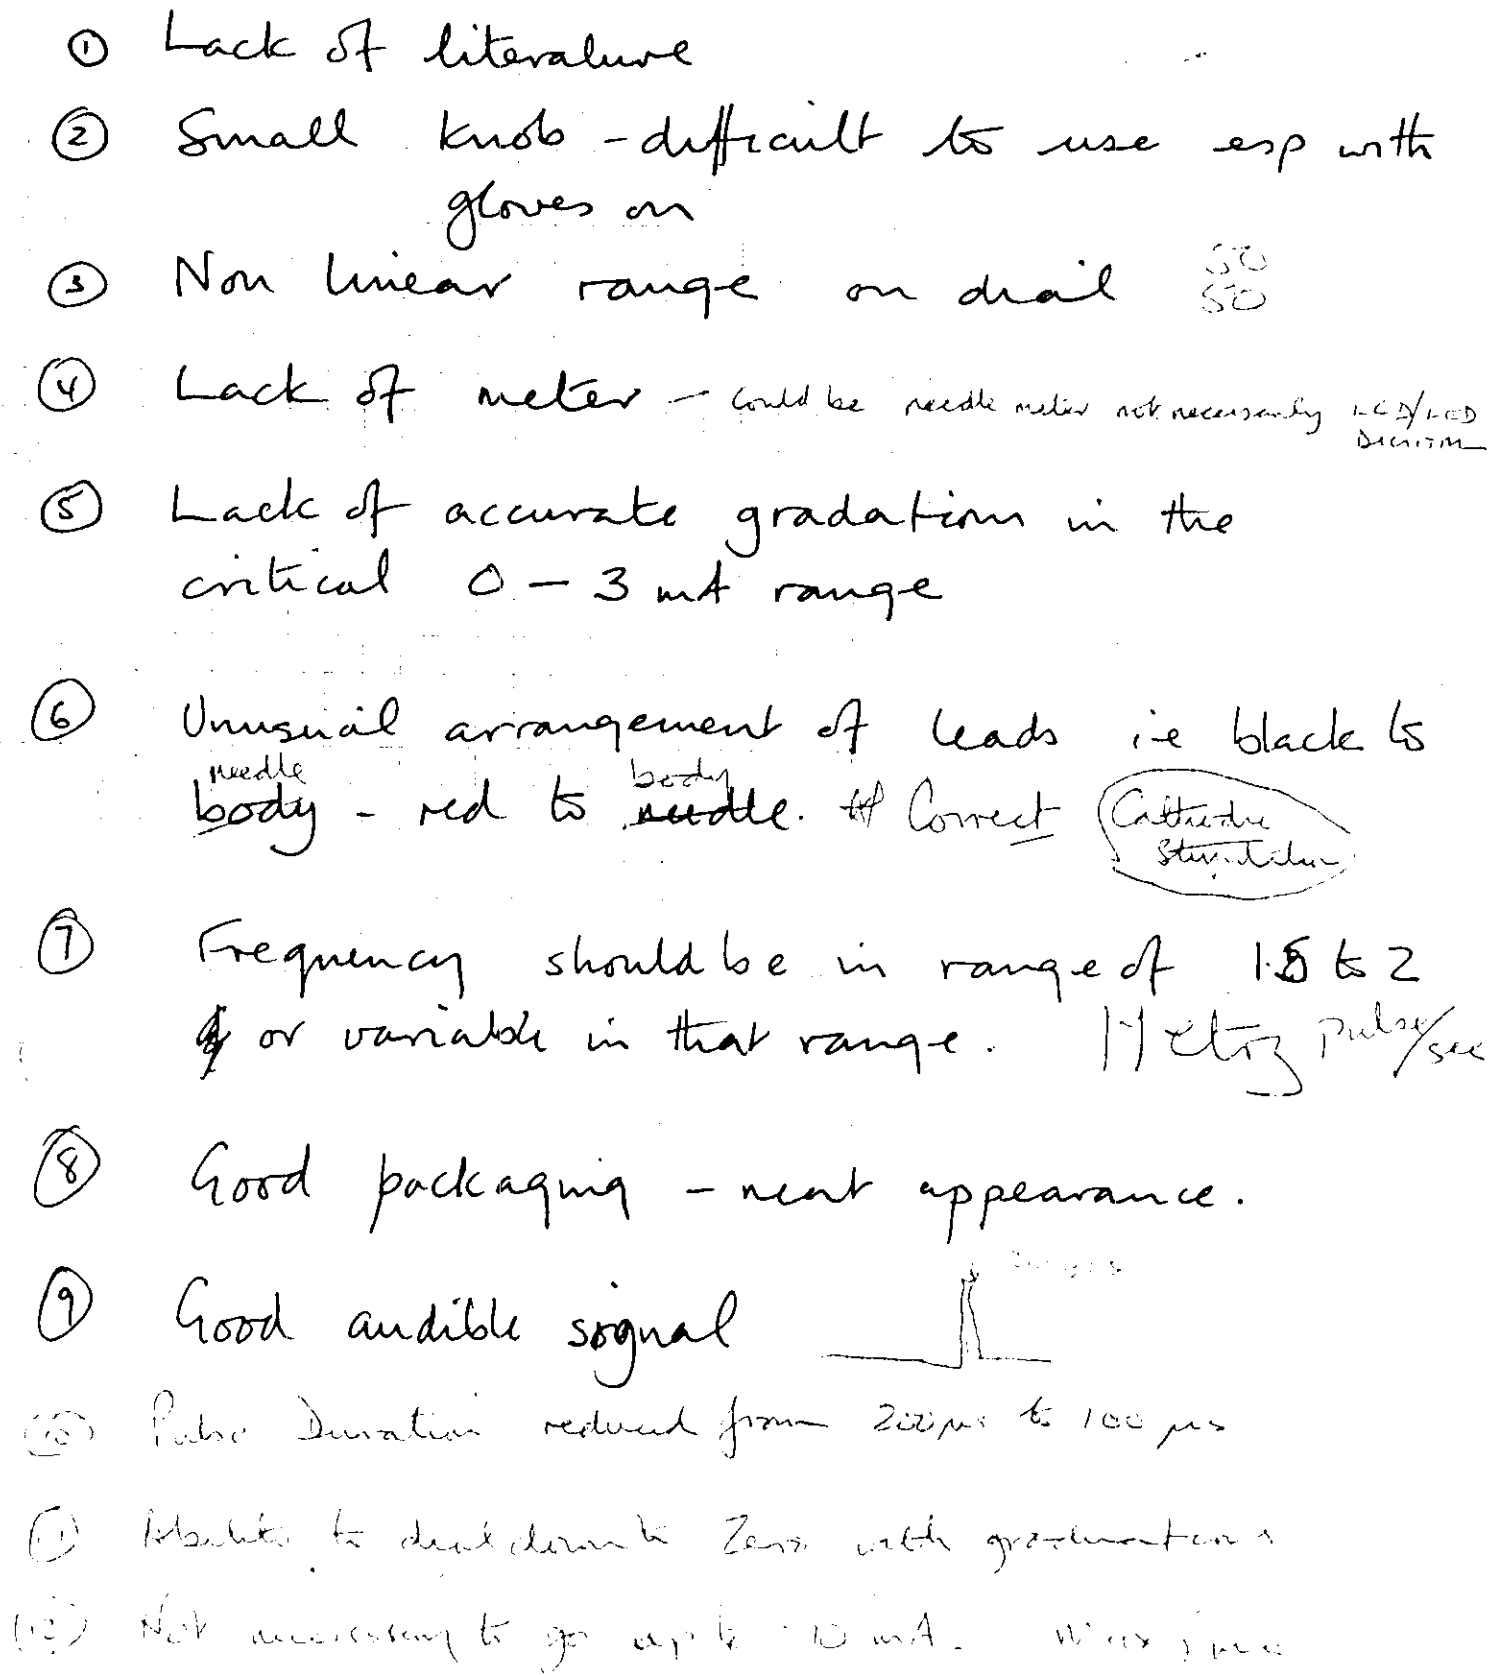 ① Lack of literature
② Small knob - difficult to use esp with
gloves on
③ Non linear range on dial 50
50
④ Lack of meter - could be needle meter not necessarily LCD/LED
DIGITAL
⑤ Lack of accurate gradations in the
critical 0 - 3 mA range
⑥ Unusual arrangement of leads ie black to
needle body
body - red to needle. Correct Cathode
Stimulation
⑦ Frequency should be in range of 1.5 to 2
or variable in that range. Hertz pulse/sec
⑧ Good packaging - neat appearance.
⑨ Good audible signal
⑩ Pulse Duration reduced from 200 µs to 100 µs
⑪ Ability to dial down to Zero with graduations
⑫ Not necessary to go up to 10 mA.